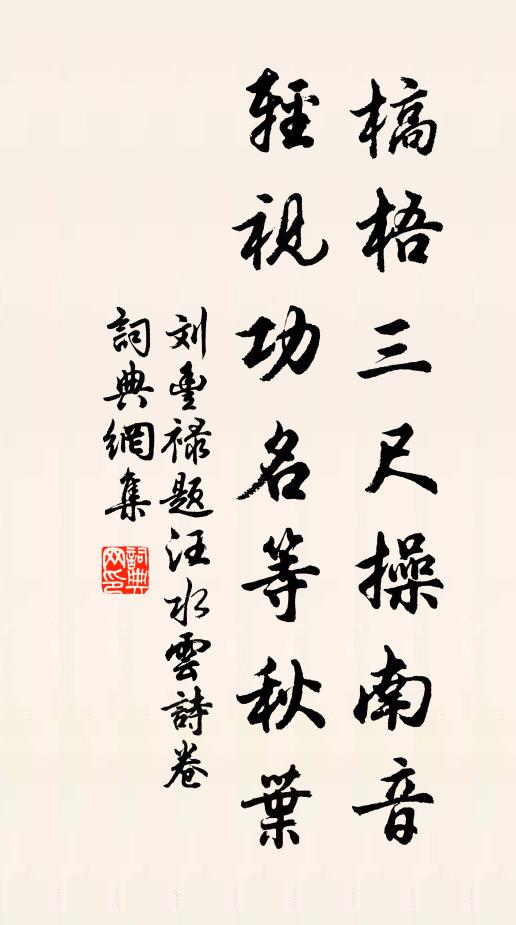 槁梧三尺操南音
輕視功名等秋葉
刘豊禄题汪水雲詩卷
詞典網集
詞典网印